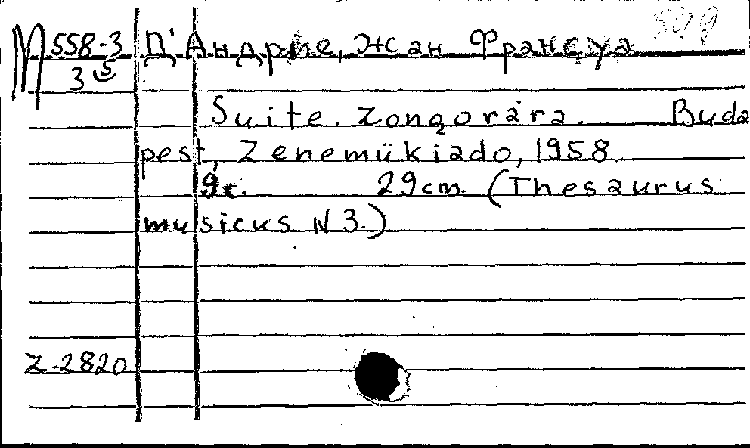 М 558-3 Д'Андрие, Жан Франсуа
3
Suite. Zongorára. Buda
pest, Zenemükiado, 1958
9с. 29cm (Thesaurus
musicus N3.)
Z-2820